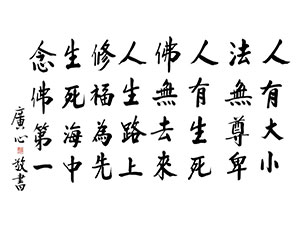 人有大小
法無尊卑
人有生死
佛無去來
人生路上
修福為先
生死海中
念佛第一
廣心敬書